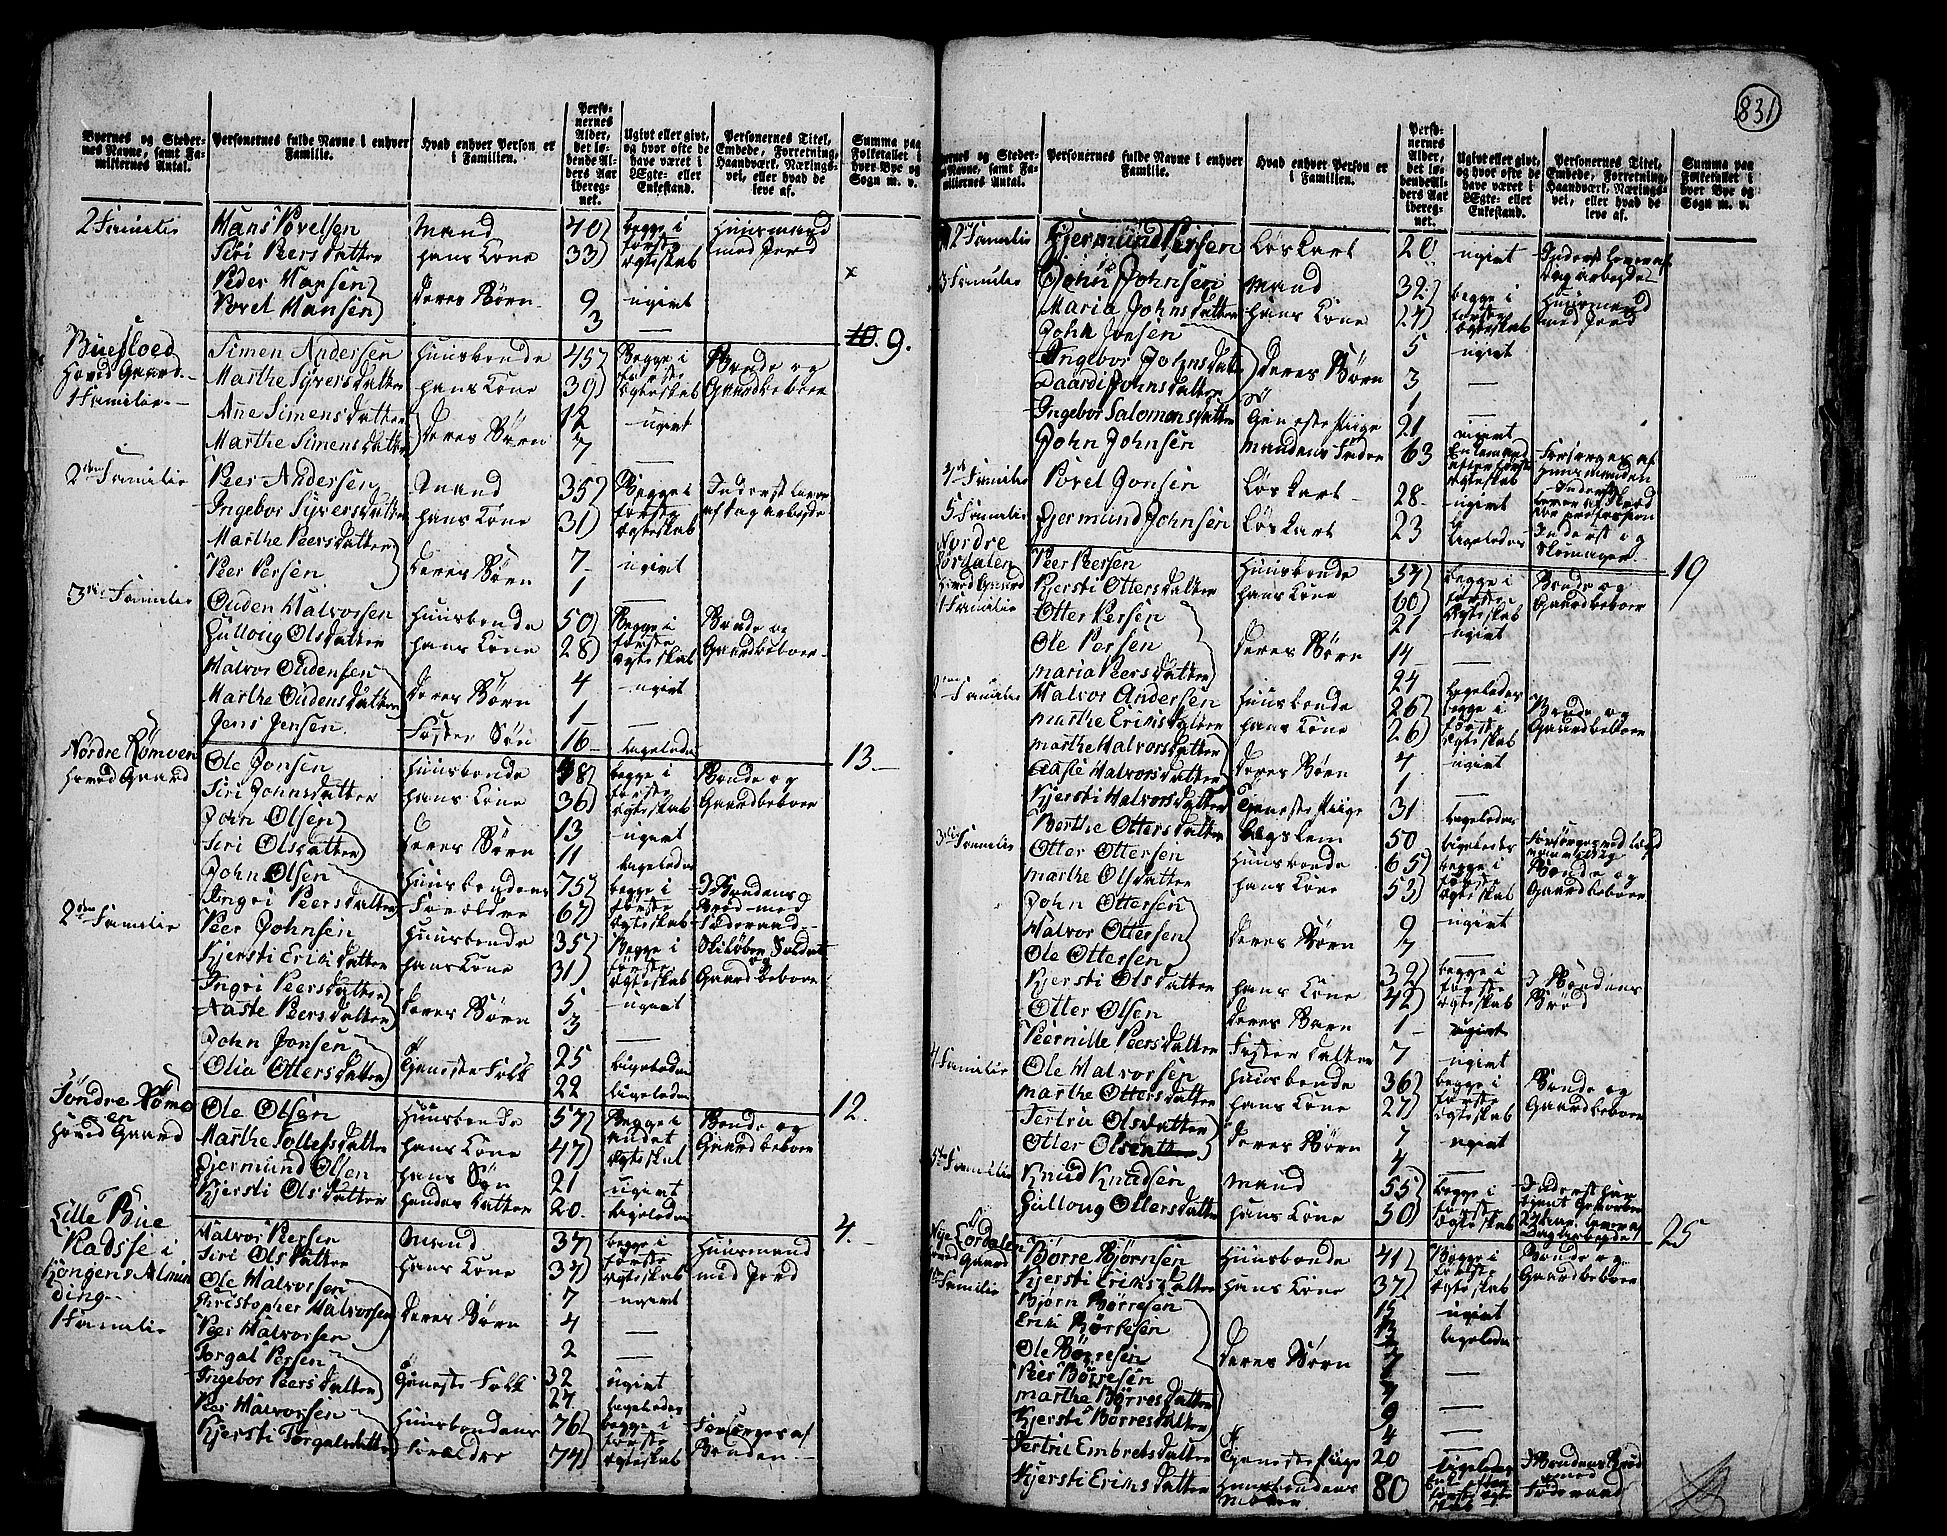 831
Byernes og Steder-
nes Navne, samt Fa-
miliernes Antal.
Personernes fulde Navne i enhver
Familie.
Hvad enhver Person er
i Familien.
Perso-
nernes
Alder,
det lø-
bende Al-
ders Aar
ibereg-
net.
Ugivt eller givt,
og hvor ofte de
have været i
Ægte- eller
Enkestand.
Personernes Titel,
Embede, Forretning,
Haandværk, Nærings-
vei, eller hvad de
leve af.
Summa paa
Folketallet i
hver Bye og
Sogn m. v.
2 Familie Hans Povelsen Mand 40 begge i Huusmand
Siri Peersdatter hans Kone 33 første med Jord
ægteskab
Peder Hansen deres Børn 9 ugivt
Povel Hansen 3 —
10. 9.
Simen Andersen Huusbonde 45 Begge i Bonde og
Hoved Gaard Marthe Syversdatter hans Kone 39 første Gaardbeboer
1 Familie ægteskab
Ane Simensdatter deres Børn 12 ugivt
Marthe Simensdatter 7 —
2den Familie Peer Andersen Mand 35 Begge i Inderst lever
Ingebor Syversdatter hans Kone 31 første af dagarbejde
ægteskab
Marthe Peersdatter deres Børn 7 ugivt
Peer Persen 1 —
3die Familie Ouden Halvorsen Huusbonde 50 Begge i Bonde og
Gulloug Olsdatter hans Kone 28 første Gaardbeboer
ægteskab
Halvor Oudensen deres Børn 4 ugivt
Marthe Oudensdatter 1 —
Jens Jensen Foster Søn 16 ligeledes
13
Nordre Rømoen Ole Jonsen Huusbonde 38 begge i Bonde og
Hoved Gaard Siri Johnsdatter hans Kone 36 første Gaardbeboer
ægteskab
John Olsen deres Børn 13 ugivt
Siri Olsdatter 11 ligeledes
John Olsen Huusbondens 75 begge i I Bondens
Ingri Peersdatter Forældre 67 første Brød med
ægteskab Føderaad
2den Familie Peer Johnsen Huusbonde 35 Begge i Skiløber Soldat
Kjersti Erichsdatter hans Kone 31 første og
ægteskab Gaardbeboer
Ingri Peersdatter deres Børn 5 ugivt
Aaste Peersdatter 3 —
John Jonsen Tjeneste Folk 25 ligeledes
Olia Ottersdatter 22 ligeledes
12.
Søndre Rømo
en Ole Olsen Huusbonde 57 Begge i Bonde og
Hoved Gaard Marthe Tollefsdatter hans Kone 47 andet Gaardbeboer
ægteskab
Gjermund Olsen hans Søn 21 ugivt
Kjersti Olsdatter hendes datter 20. ligeledes
4.
Lille Bue
Kadsse i Halvor Peersen Mand 37 begge i Huusmand
Kongens Almin Siri Olsdatter hans Kone 37 første med Jord
ding ægteskab
1 Familie Ole Halvorsen 7 ugivt
Christopher Halvorsen deres Børn 4 —
Peer Halvorsen 2 —
Torgal Persen Tjeneste Folk 32 ugivt
Ingebor Peersdatter 27 ligeledes
Peer Halvorsen Huusbondens 76 begge i Forsørges af
Kjersti Torgalsdatter Forældre 74 første Bonden
ægteskab
Personernes fulde Navne i enhver
Familie.
Hvad enhver Person er
i Familien.
Perso-
nernes
Alder,
det lø-
bende Al-
ders Aar
ibereg-
net.
Ugivt eller givt,
og hvor ofte de
have været i
Ægte- eller
Enkestand.
Personernes Titel,
Embede, Forretning,
Haandværk, Nærings-
vei, eller hvad de
leve af.
Summa paa
Folketallet i
hver Bye og
Sogn m. v.
2 Familie Gjermund Persen Løskart 20 ugivt Inderst lever af
Dagarbejde
3 Familie John Johnsen Mand 32 begge i Huusmand
Maria Johnsdatter hans Kone 27 første med Jord
ægteskab
John Jonsen 5 ugivt
Ingebor Johnsdatter deres Børn 3 —
Johnsdatter 1 —
Ingebor Salomonsdatter Tjeneste Piige 21 ugivt
John Johnsen Mandens Fader 63 Enkemand Forsørges af
efter første Huusmanden
ægteskab
4de Familie Povel Jonsen Løskart 28 ugivt Inderst
5 Familie Gjermund Johnsen Løskart 23 ligeledes Inderst og
Skomager
19
Nordre
Hoved Gaard Peer Peersen Huusbonde 57 begge i Bonde og
1 Familie Kjersti Ottersdatter hans Kone 60 første Gaardbeboer
ægteskab
Otter Persen 21 ugivt
Ole Persen deres Børn 14 —
Maria Peersdatter 24 ligeledes
Familie Halvor Andersen Huusbonde 26 begge i Bonde og
Marthe Erichsdatter hans Kone 26 første Gaardbeboer
ægteskab
Marthe Halvorsdatter deres Børn 4 ugivt
Aaste Halvorsdatter 1 —
Kjersti Halvorsdatter Tjeneste Piige 31 ligeledes
Berthe Ottersdatter Lægslem 50 ligeledes
3die Familie Otter Ottersen Huusbonde 65 begge i Bonde og
Marthe Olsdatter hans Kone 53 første Gaardbeboer
ægteskab
John Ottersen 9 ugivt
Halvor Ottersen deres Børn 7 —
Ole Ottersen 32 begge i I Bondens
Kjersti Olsdatter hans Kone 42 første Brød
ægteskab
Otter Olsen deres Barn 1 ugivt
Peernille Peersdatter Foster datter 7 ugivt
4 Familie Ole Halvorsen Huusbonde 36 begge i Bonde og
Marthe Ottersdatter hans Kone 27 første Gaardbeboer
ægteskab
Sertru Olsdatter deres Børn 7 ugivt
Otter Ols 4 —
5te Familie Knud Knudsen Mand 55 begge i
Gulloug Ottersdatter hans Kone 50 første
ægteskab Dagarbejde
25
Hoved Gaard Børre Bjørnsen Huusbonde 41 Begge i Bonde og
Familie Kjersti Erichsdatter hans Kone 37 første Gaardbeboer
ægteskab
Bjørn Børresen 15 ugivt
Erich Børresen ligeledes
Ole Børresen deres Børn
Peer Børresen 7
Marthe Børresdatter 9 —
Kjersti Børresdatter 4 —
Sertru Embretsdatter Tjeneste Piige 20 ligeledes I Bondens Brød
Kjersti Erichsdatter Huusbondens 80 Enke efter med
Moder første ægte Føderaad
skab